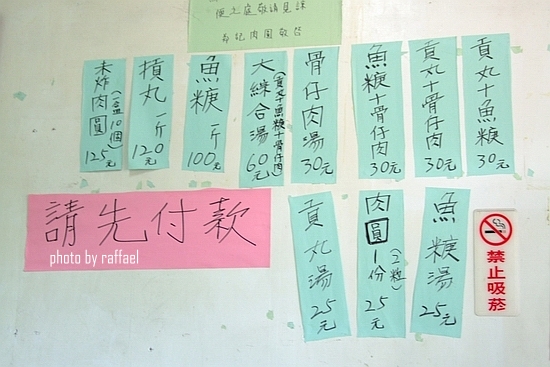 便之處敬請見諒
市北肉圓敬啓
貢丸十魚糠 30元
貢丸十骨仔肉 30元
魚糠十骨仔肉 30元
骨仔肉湯 30元
大綜合湯 60元
(貢丸十魚糠十骨仔肉)
魚糠 一斤 100元
摃丸 一斤 120元
未炸肉圓 125元
(一盒10個)
請先付款
photo by raffael
魚糠湯 25元
肉圓 1份 25元
(2粒)
貢丸湯 25元
禁止吸菸